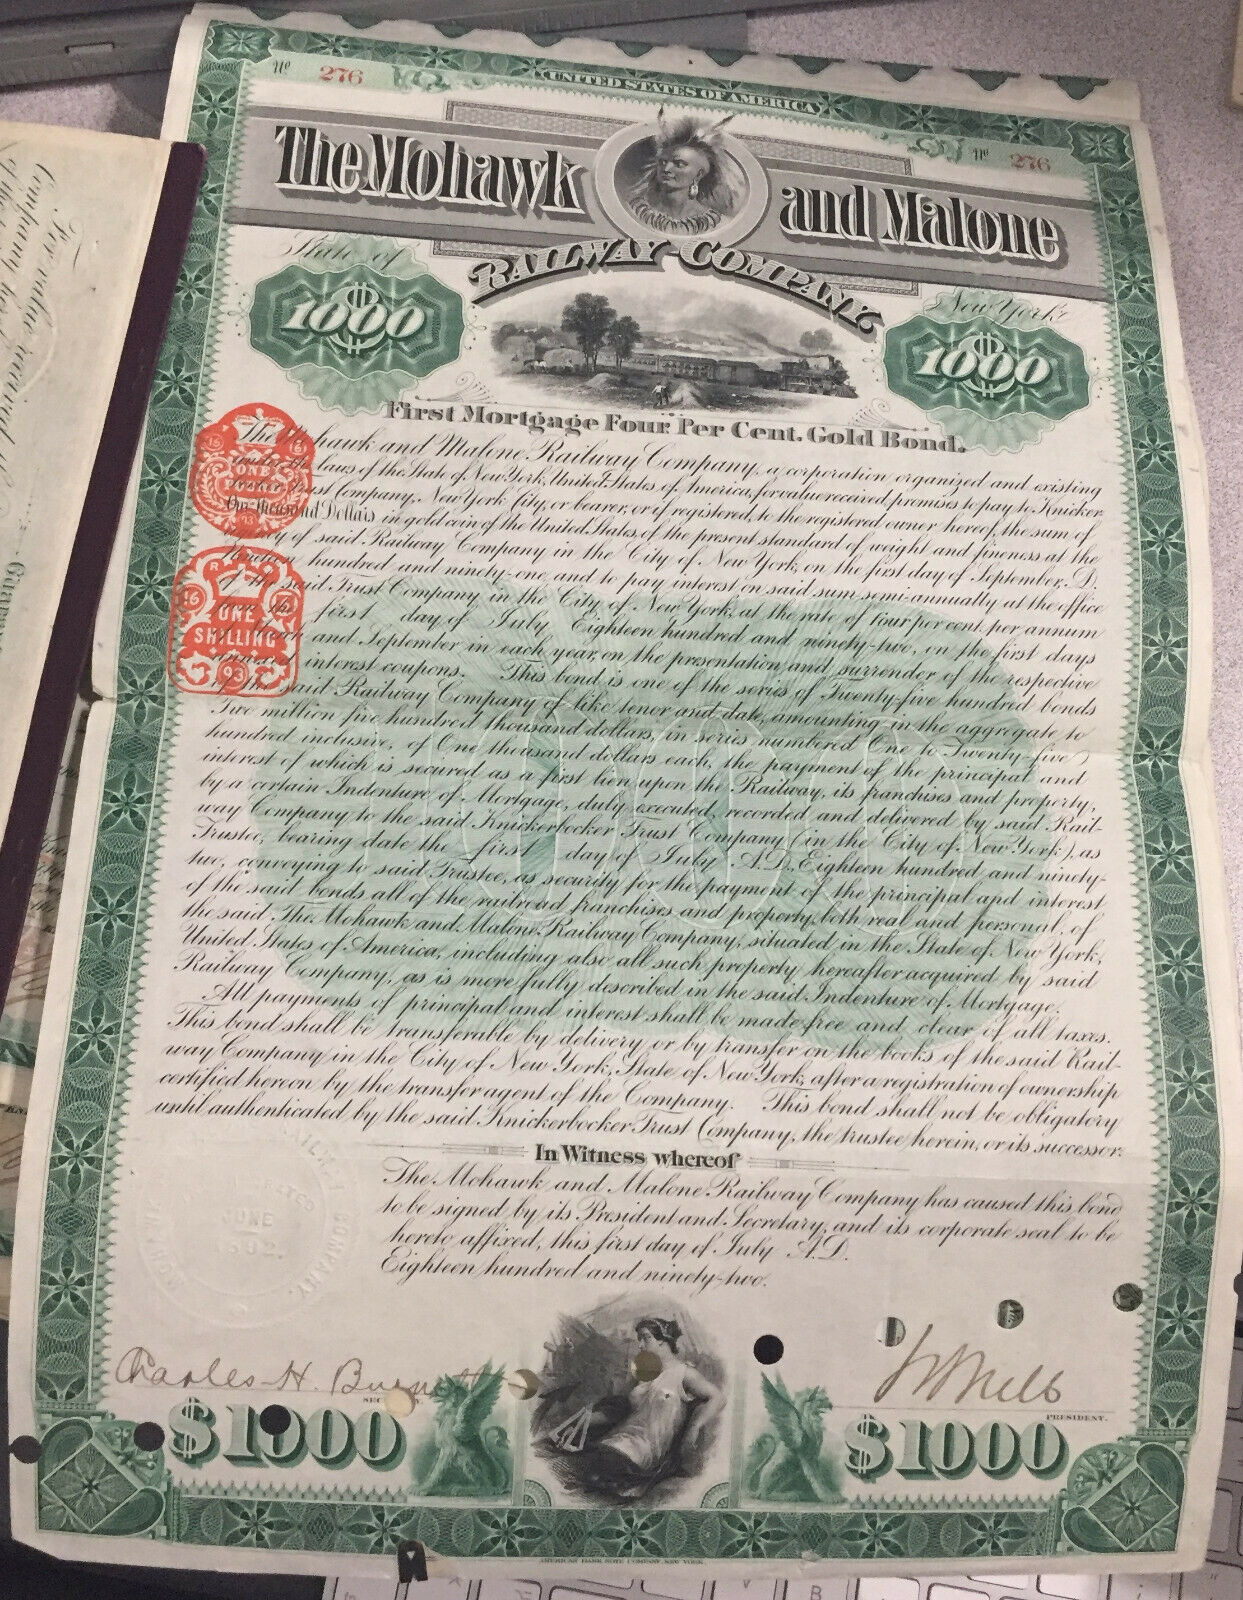 UNITED STATES OF AMERICA
No 276
No 276
The Mohawk and Malone
RAILWAY COMPANY.
State of New York
1000
1000
First Mortgage Four Per Cent. Gold Bond.
The Mohawk and Malone Railway Company, a corporation organized and existing
under the laws of the State of New York, United States of America, for value received promises to pay to Knicker-
Trust Company, New York City, or bearer, or if registered, to the registered owner hereof, the sum of
One thousand Dollars in gold coin of the United States, of the present standard of weight and fineness at the
of said Railway Company in the City of New York, on the first day of September, A.D.
Nineteen hundred and ninety-one, and to pay interest on said sum semi-annually at the office
of the said Trust Company in the City of New York, at the rate of four per cent. per annum
first day of July Eighteen hundred and ninety-two, on the first days
of March and September in each year, on the presentation and surrender of the respective
annexed interest coupons. This bond is one of the series of Twenty-five hundred bonds
of the said Railway Company of like tenor and date, amounting in the aggregate to
Two million five hundred thousand dollars, in series numbered One to Twenty-five
hundred inclusive, of One thousand dollars each, the payment of the principal and
interest of which is secured as a first lien upon the Railway, its franchises and property,
by a certain Indenture of Mortgage, duly executed, recorded and delivered by said Rail-
way Company to the said Knickerbocker Trust Company (in the City of New York), as
Trustee, bearing date the first day of July A.D. Eighteen hundred and ninety-
two, conveying to said Trustee, as security for the payment of the principal and interest
of the said bonds all of the railroad franchises and property, both real and personal, of
the said The Mohawk and Malone Railway Company, situated in the State of New York,
United States of America, including also all such property hereafter acquired by said
Railway Company, as is more fully discribed in the said Indenture of Mortgage.
All payments of principal and interest shall be made free and clear of all taxes.
This bond shall be transferable by delivery or by transfer on the books of the said Rail-
way Company in the City of New York, State of New York, after a registration of ownership
certified hereon by the transfer agent of the Company. This bond shall not be obligatory
until authenticated by the said Knickerbocker Trust Company, the trustee herein, or its successor.
In Witness whereof
The Mohawk and Malone Railway Company has caused this bond
to be signed by its President and Secretary, and its corporate seal to be
hereto affixed, this first day of July A.D.
Eighteen hundred and ninety-two.
16 16
ONE
93
16
ONE
SHILLING
93
JUNE
COMPANY.
Charles H. Burnett
PRESIDENT.
$1000
$1000
AMERICAN BANK NOTE COMPANY, NEW YORK.